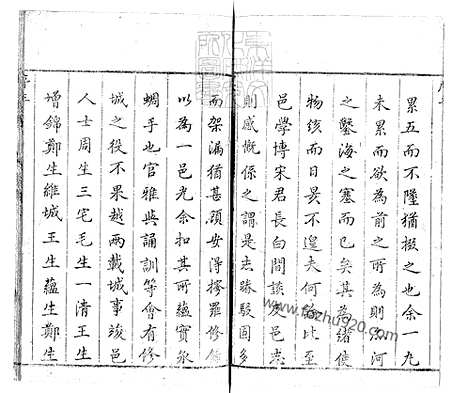 累五而不墜猶掇之也余一九
未累而欲為前之所為則河
之鑿海之塞而已矣其為緒使
物絃而日昃不遑夫何 比至
邑學博宋君長白間談及邑志
則感慨係之謂是志踳駁固多
而架漏猶甚頭安得擇羅修
以為一邑光余扣其所蘊實氷
蜩手也官雅與誦訓等倫有修
城之役不果越兩載城事竣邑
人士周生三宅毛生一清王生
增錦鄭生維城王生蘊生鄭生